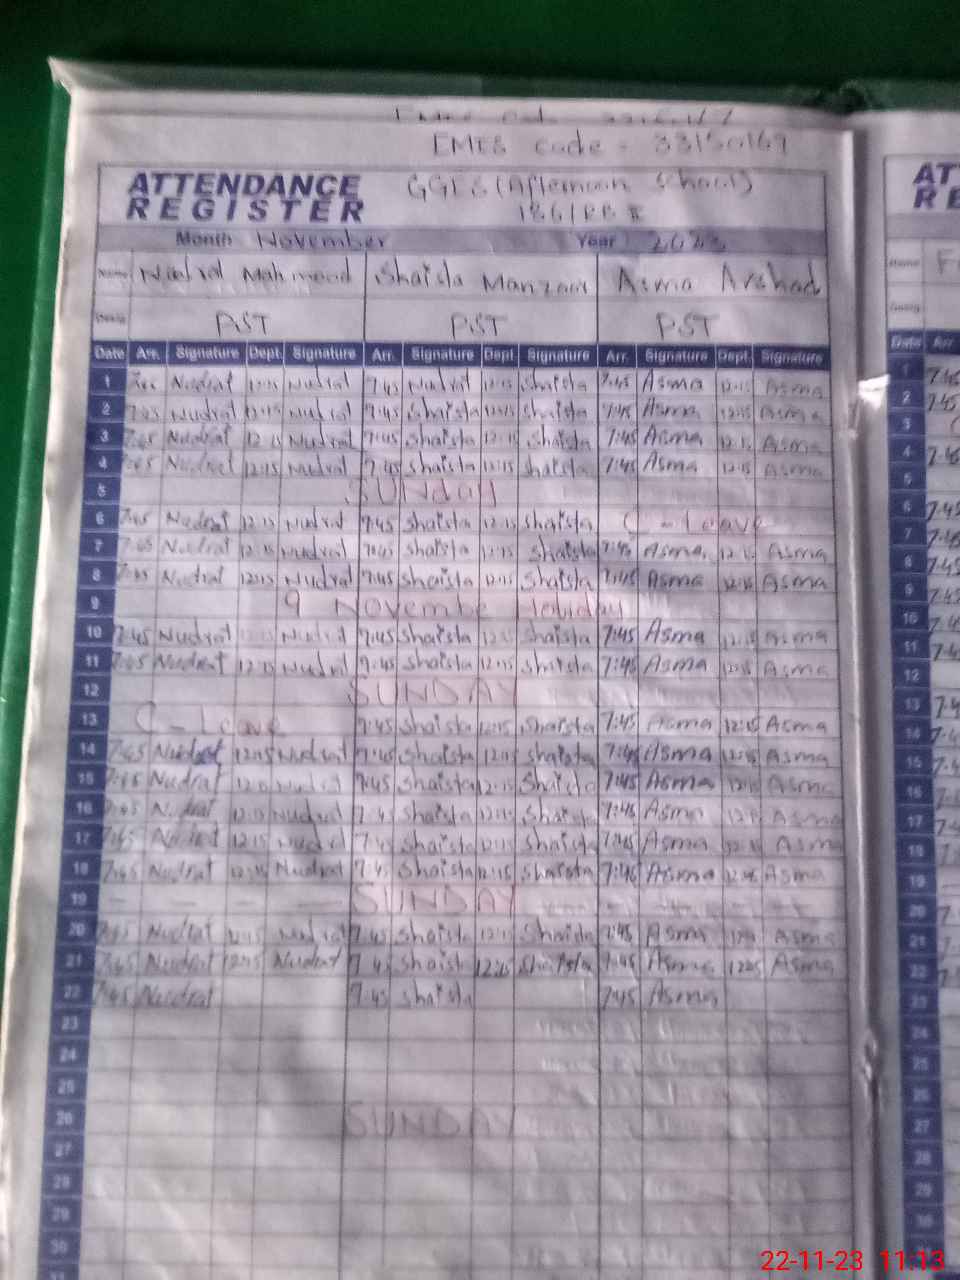 EMES code - 33150169
ATTENDANCE REGISTER
GGES (Afternoon School)
186/RB
Month November Year 2023
Name Nudrat Mahmood Shaista Manzoor Asma Arshad
Desig PST PST PST
Date Arr. Signature Dept. Signature Arr. Signature Dept. Signature Arr. Signature Dept. Signature
1 Nudrat 12:15 Nudrat 7:45 Nudrat 12:15 Shaista 7:45 Asma 12:15 Asma
2 7:45 Nudrat 12:15 Nudrat 7:45 Shaista 12:15 Shaista 7:45 Asma 12:15 Asma
3 7:45 Nudrat 12:15 Nudrat 7:45 Shaista 12:15 Shaista 7:45 Asma 12:15 Asma
4 7:45 Nudrat 12:15 Nudrat 7:45 Shaista 12:15 Shaista 7:45 Asma 12:15 Asma
5 SUNday
6 7:45 Nudrat 12:15 Nudrat 7:45 Shaista 12:15 Shaista C-Leave
7 7:45 Nudrat 12:15 Nudrat 7:45 Shaista 12:15 Shaista 7:45 Asma 12:15 Asma
8 7:45 Nudrat 12:15 Nudrat 7:45 Shaista 12:15 Shaista 7:45 Asma 12:15 Asma
9 9 Novembe Holiday
10 7:45 Nudrat 12:15 Nudrat 7:45 Shaista 12:15 Shaista 7:45 Asma 12:15 Asma
11 7:45 Nudrat 12:15 Nudrat 7:45 Shaista 12:15 Shaista 7:45 Asma 12:15 Asma
12 SUNDAY
13 C-Leave 7:45 Shaista 12:15 Shaista 7:45 Asma 12:15 Asma
14 7:45 Nudrat 12:15 Nudrat 7:45 Shaista 12:15 Shaista 7:45 Asma 12:15 Asma
15 7:45 Nudrat 12:15 Nudrat 7:45 Shaista 12:15 Shaista 7:45 Asma 12:15 Asma
16 7:45 Nudrat 12:15 Nudrat 7:45 Shaista 12:15 Shaista 7:45 Asma 12:15 Asma
17 7:45 Nudrat 12:15 Nudrat 7:45 Shaista 12:15 Shaista 7:45 Asma 12:15 Asma
18 7:45 Nudrat 12:15 Nudrat 7:45 Shaista 12:15 Shaista 7:45 Asma 12:15 Asma
19 SUNDAY
20 7:45 Nudrat 12:15 Nudrat 7:45 Shaista 12:15 Shaista 7:45 Asma Asma
21 7:45 Nudrat 12:15 Nudrat 7:45 Shaista 12:15 Shaista 7:45 Asma 12:15 Asma
22 7:45 Nudrat 7:45 Shaista 7:45 Asma
23
24
25
26 SUNDAY
27
28
29
30
22-11-23 11:13